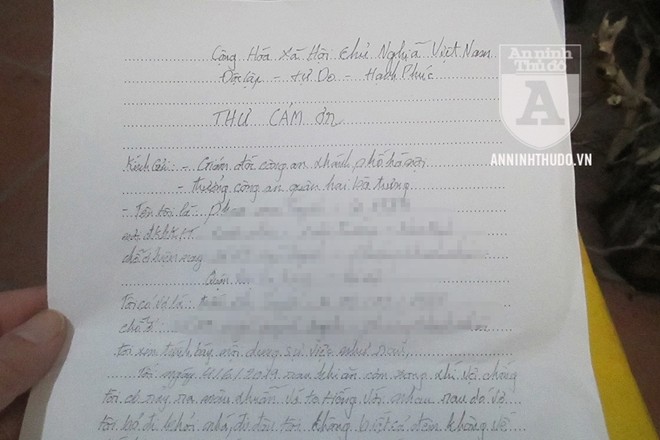 Cộng Hòa Xã Hội Chủ Nghĩa Việt Nam
Độc lập - Tự Do - Hạnh Phúc
An ninh
Thủ đô
A
ANNINHTHUDO.VN
THƯ CẢM ƠN
Kính Gửi: - Giám đốc công an thành phố hà nội
- trưởng công an quận hai bà trưng
- Tên tôi là
nơi đkhktt
chỗ ở hiện nay
Quận
Tôi có vợ là
chỗ ở
tôi xin trình bày nội dung sự việc như sau
Tôi ngày 4/6/2019 sau khi ăn cơm xong thì vợ chồng
tôi có xảy ra mâu thuẫn và to tiếng với nhau sau đó vợ
tôi bỏ đi khỏi nhà, đi đâu tôi không biết cả đêm không về